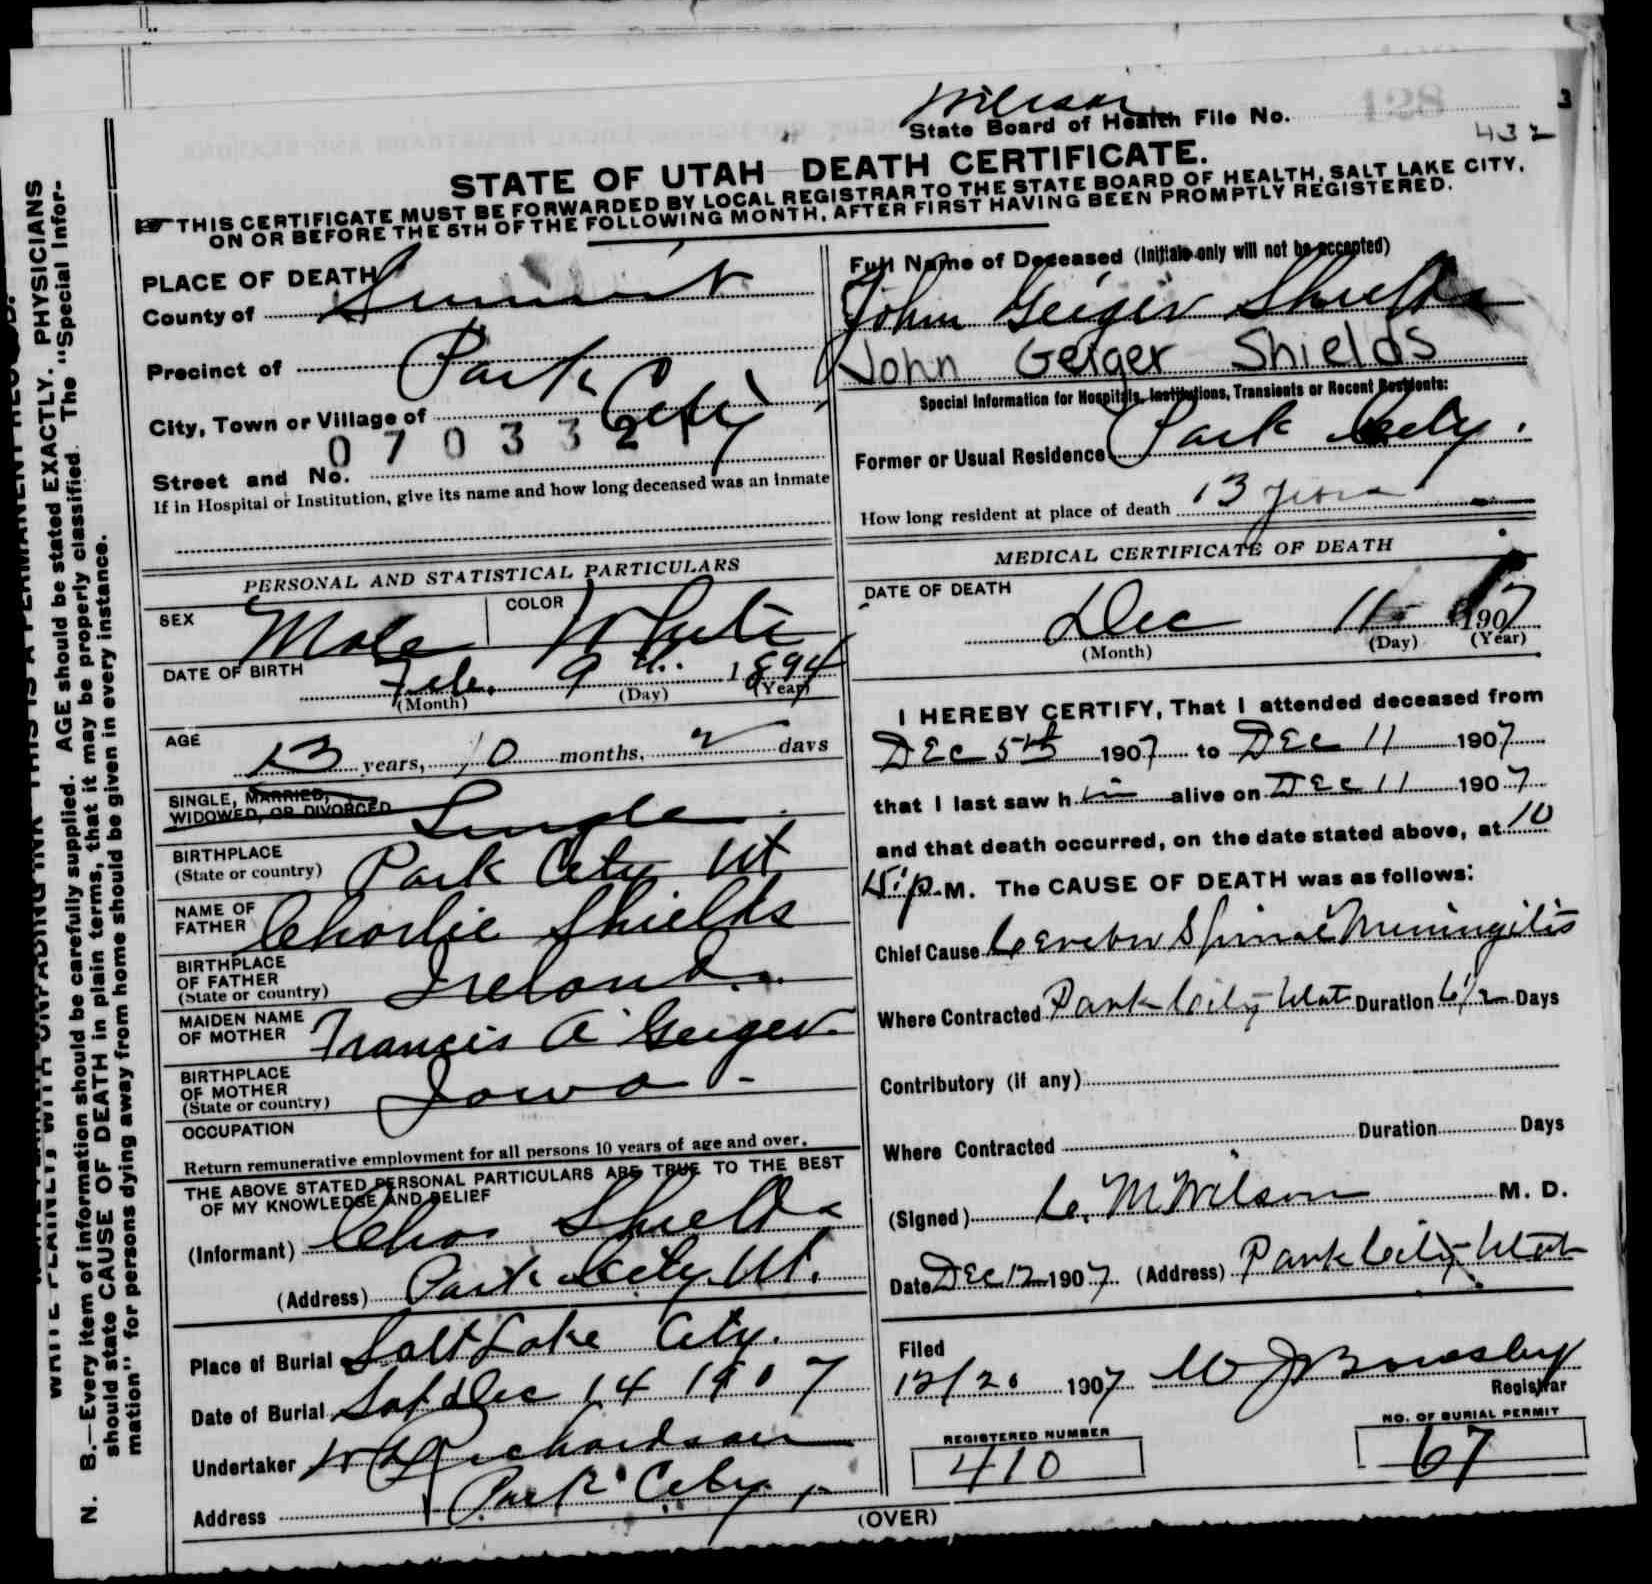 Wilson
State Board of Health File No. 128
432
STATE OF UTAH DEATH CERTIFICATE.
THIS CERTIFICATE MUST BE FORWARDED BY LOCAL REGISTRAR TO THE STATE BOARD OF HEALTH, SALT LAKE CITY,
ON OR BEFORE THE 5TH OF THE FOLLOWING MONTH, AFTER FIRST HAVING BEEN PROMPTLY REGISTERED.
PLACE OF DEATH
County of Summit
Precinct of Park
City, Town or Village of City
0 7 0 3 3 2
Street and No.
If in Hospital or Institution, give its name and how long deceased was an inmate
Full Name of Deceased (Initials only will not be accepted)
John Geiger Shields
John Geiger Shields
Special Information for Hospitals, Institutions, Transients or Recent Residents:
Former or Usual Residence Park City.
How long resident at place of death 13 years
PERSONAL AND STATISTICAL PARTICULARS
SEX Male COLOR White
DATE OF BIRTH Feb. 9th. 1894
(Month) (Day) (Year)
AGE 13 years, 10 months, 2 days
SINGLE, MARRIED,
WIDOWED, OR DIVORCED Single
BIRTHPLACE
(State or country) Park City Ut
NAME OF
FATHER Charlie Shields
BIRTHPLACE
OF FATHER
(State or country) Ireland.
MAIDEN NAME
OF MOTHER Francis A Geiger
BIRTHPLACE
OF MOTHER
(State or country) Iowa -
OCCUPATION
Return remunerative employment for all persons 10 years of age and over.
THE ABOVE STATED PERSONAL PARTICULARS ARE TRUE TO THE BEST
OF MY KNOWLEDGE AND BELIEF
(Informant) Chas Shields
(Address) Park City Ut.
Place of Burial Salt Lake City.
Date of Burial Sat Dec 14 1907
Undertaker Richardson
Address Park City
MEDICAL CERTIFICATE OF DEATH
DATE OF DEATH
Dec 11 1907
(Month) (Day) (Year)
I HEREBY CERTIFY, That I attended deceased from
DEC 5th 1907 to DEC 11 1907
that I last saw him alive on DEC 11 1907
and that death occurred, on the date stated above, at 10
15 p. M. The CAUSE OF DEATH was as follows:
Chief Cause Cerebro Spinal Meningitis
Where Contracted Park City Utah Duration 6 1/2 Days
Contributory (if any)
Where Contracted Duration Days
(Signed) C. M Wilson M. D.
Date DEC 12 1907 (Address) Park City Utah
Filed
12/20 1907
Registrar
REGISTERED NUMBER
410
NO. OF BURIAL PERMIT
67
(OVER)
N. B.—Every item of information should be carefully supplied. AGE should be stated EXACTLY. PHYSICIANS
should state CAUSE OF DEATH in plain terms, that it may be properly classified. The "Special Infor-
mation" for persons dying away from home should be given in every instance.